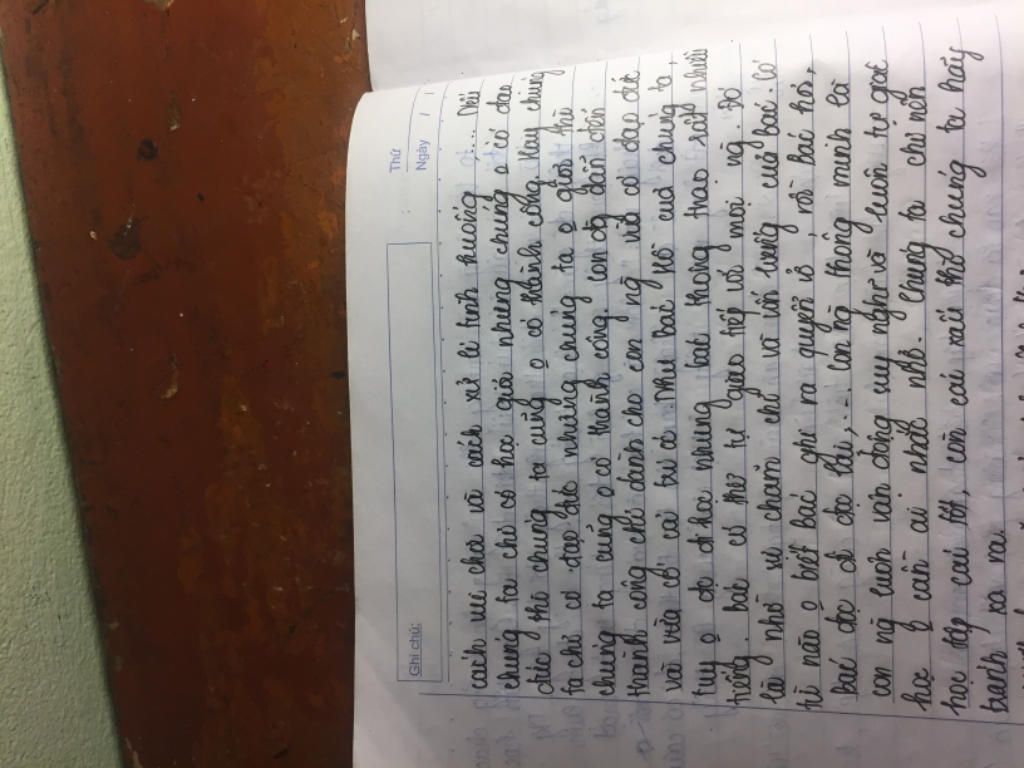 Thứ
Ngày / /
Ghi chú:
cách vui chơi và cách xử lí tình huống .... Nếu
chúng ta chỉ có học giỏi nhưng chúng o có đạo
đức thì chúng ta cũng o có thành công. Hay chúng
ta chỉ có đạo đức nhưng chúng ta o giỏi thì
chúng ta cũng o có thành công. con đg dẫn đến
thành công chỉ dành cho con ng vừa có đạo đức
và vừa có cả trí óc. Như Bác Hồ của chúng ta,
tuy o đc đi học nhưng bác thông thạo rất nhiều
tiếng. bác có thể tự giao tiếp với mọi ng. Đó
là nhờ sự chăm chỉ và ý của bác. Có
từ nào o biết bác ghi ra quyển vở, rồi bác hỏi,
bác đọc đi đọc lại,... con ng thông minh là
con ng luôn vận động suy nghĩ và luôn tự giác
học o cần ai nhắc nhở. Chúng ta chỉ nên
học tập cái tốt, còn cái xấu thì chúng ta hãy
tránh xa nó.